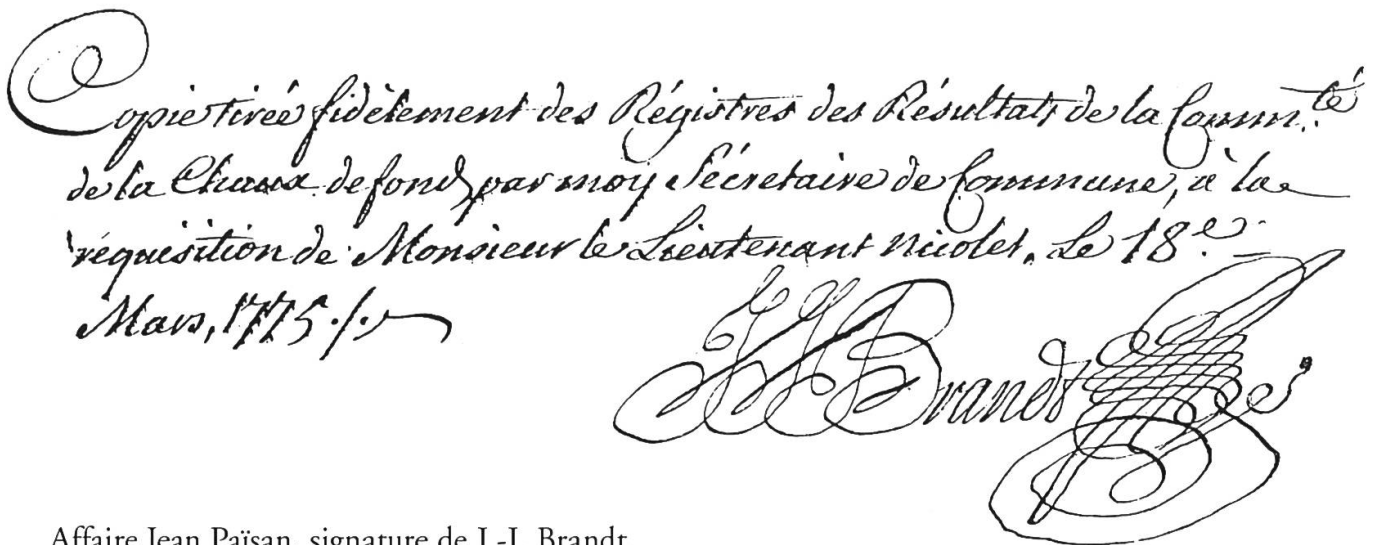 Copie tirée fidèlement des Régistres des Résultats de la Commun.té
de la Chaux de fond, par moy Sécretaire de Commune, à la
réquisition de Monsieur le Lieutenant Nicolet. Le 18.e
Mars, 1775 ./.
JJBrandt
Affaire Jean Païsan, signature de J.-J. Brandt